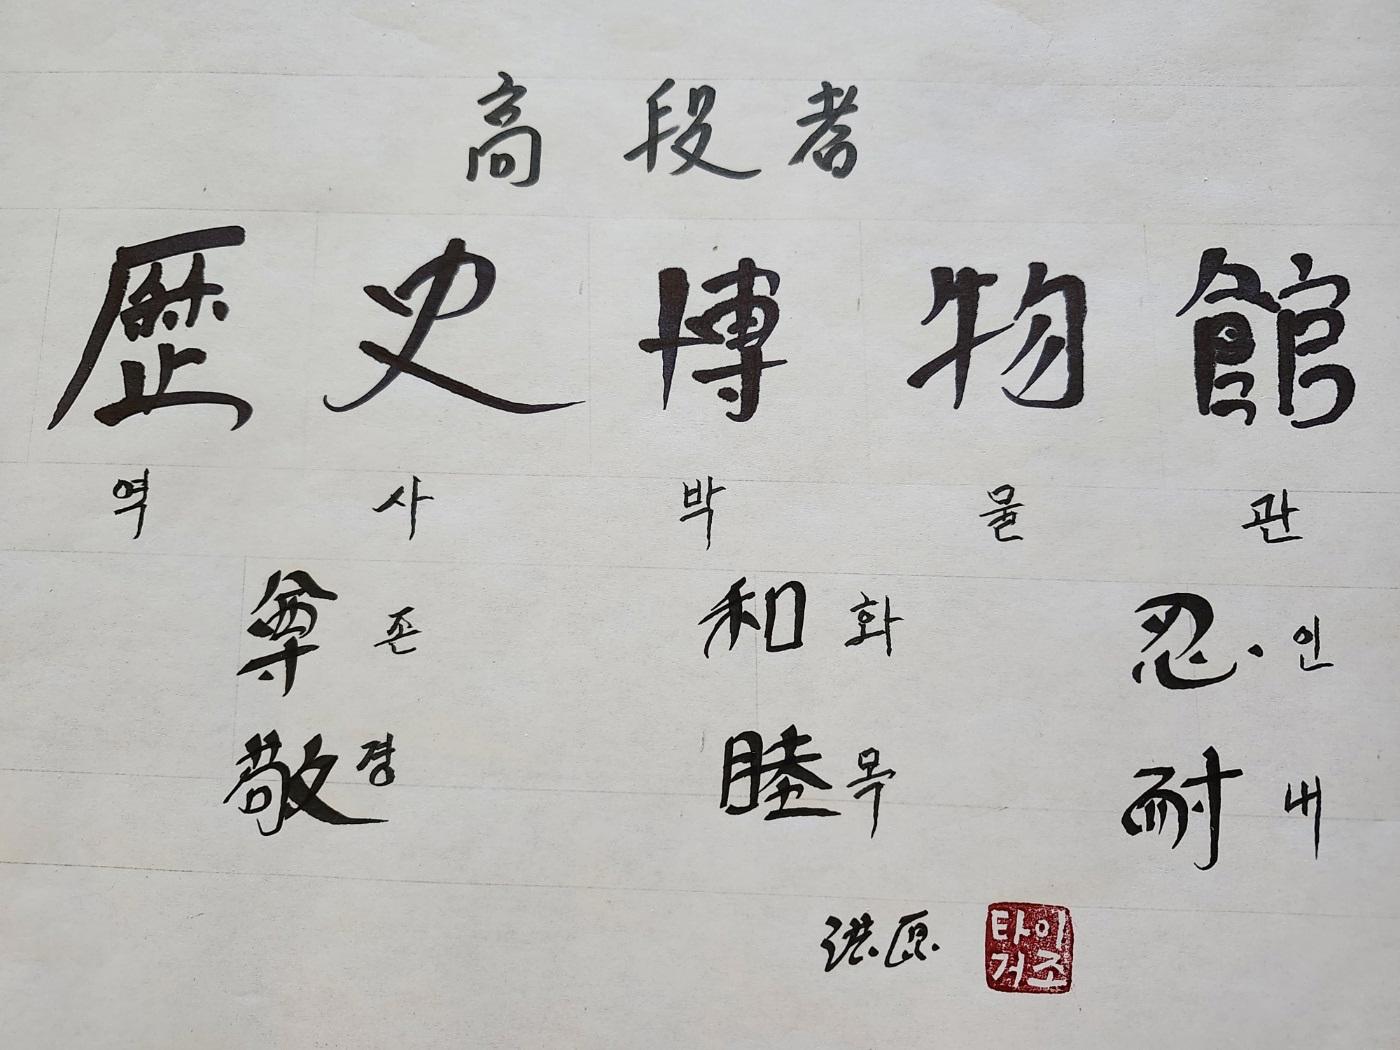 高段者
歷史博物館
역사박물관
尊 존 和 화 忍 인
敬 경 睦 목 耐 내
洪原
타이
거조